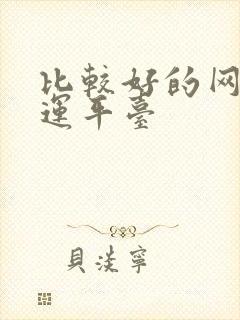 比較好的网
運平臺
貝淡寧